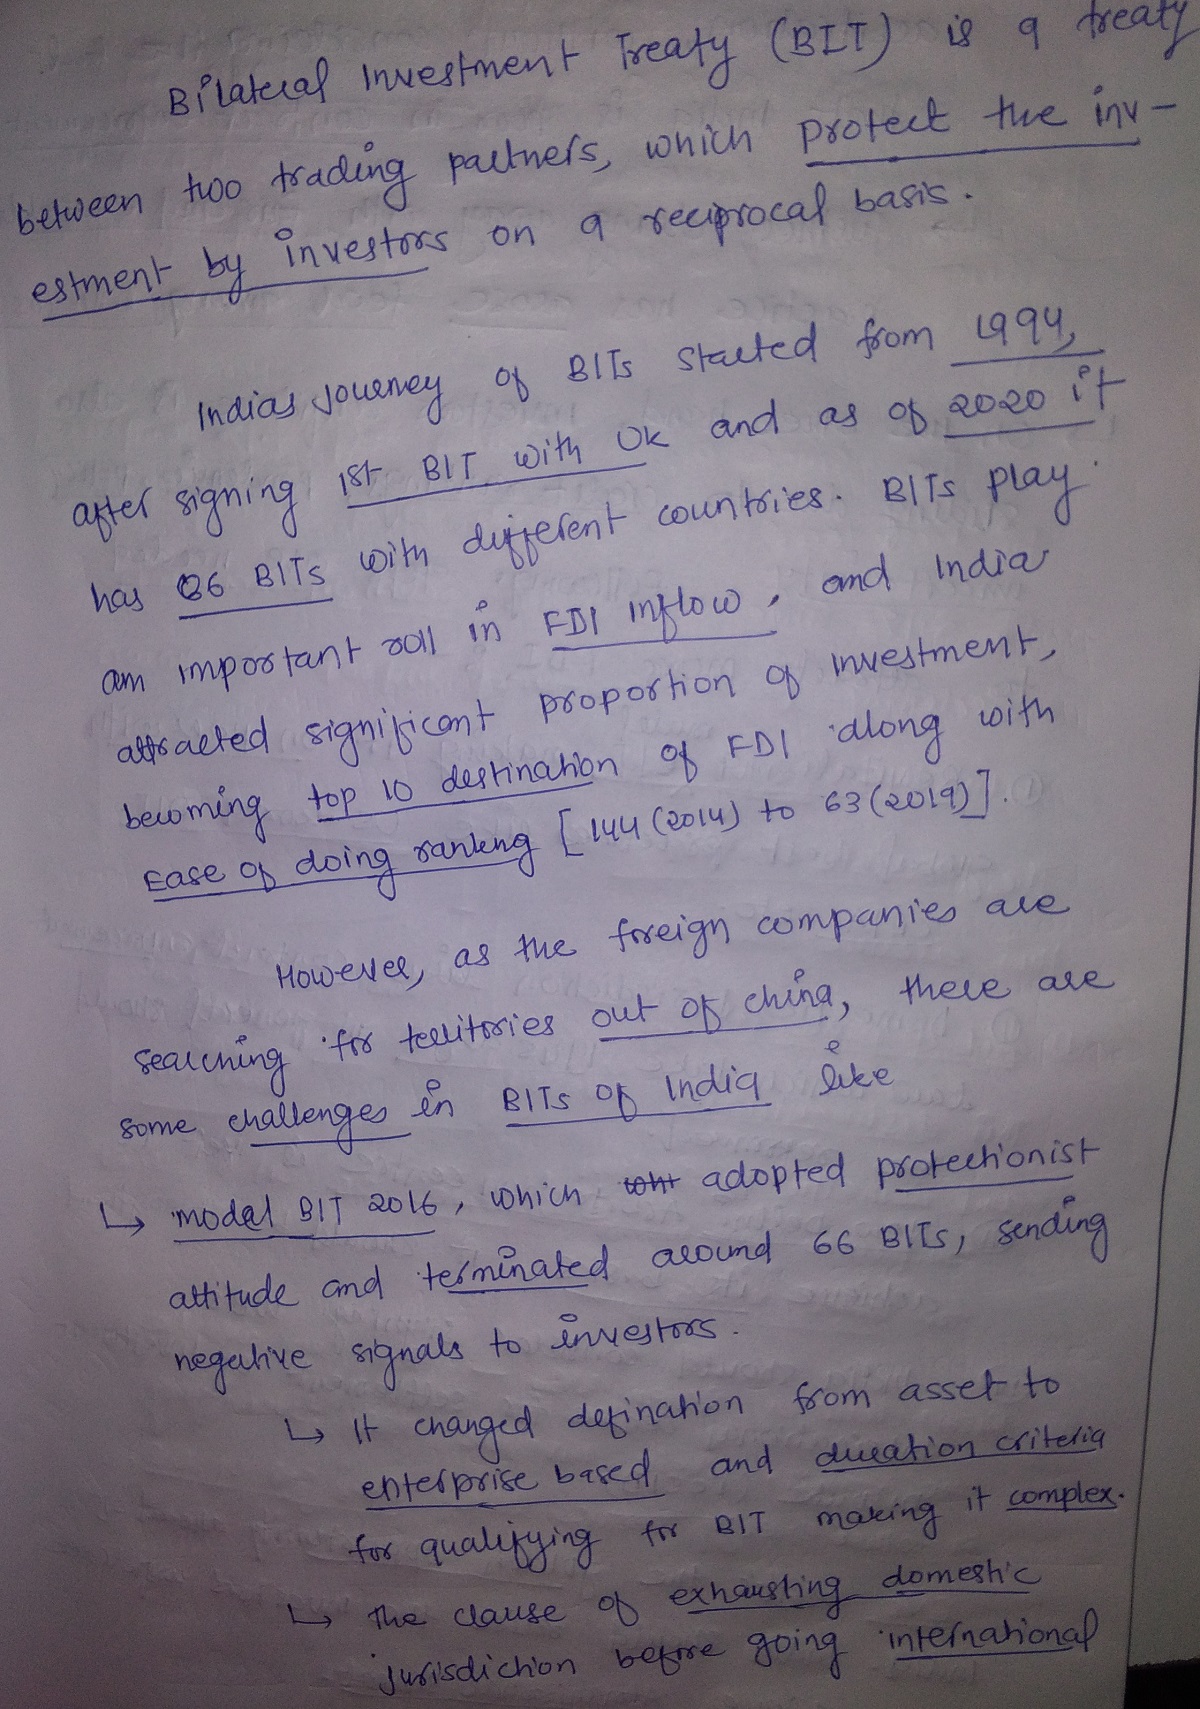 Bilateral Investment Treaty (BIT) is a treaty
between two trading partners, which protect the inv-
estment by investors on a reciprocal basis.
Indias journey of BITs started from 1994,
after signing 1st BIT with UK and as of 2020 it
has 86 BITs with different countries. BITs play
am important roll in FDI inflow, and India
attracted significant proportion of investment,
becoming top 10 destination of FDI along with
Ease of doing ranking [144 (2014) to 63 (2019)].
However, as the foreign companies are
searching for territories out of china, there are
some challenges in BITs of India like
↳ model BIT 2016, which adopted protectionist
attitude and terminated around 66 BITs, sending
negative signals to investors.
↳ It changed defination from asset to
enterprise based and duration criteria
for qualifying for BIT making it complex.
↳ The clause of exhausting domestic
jurisdiction before going international